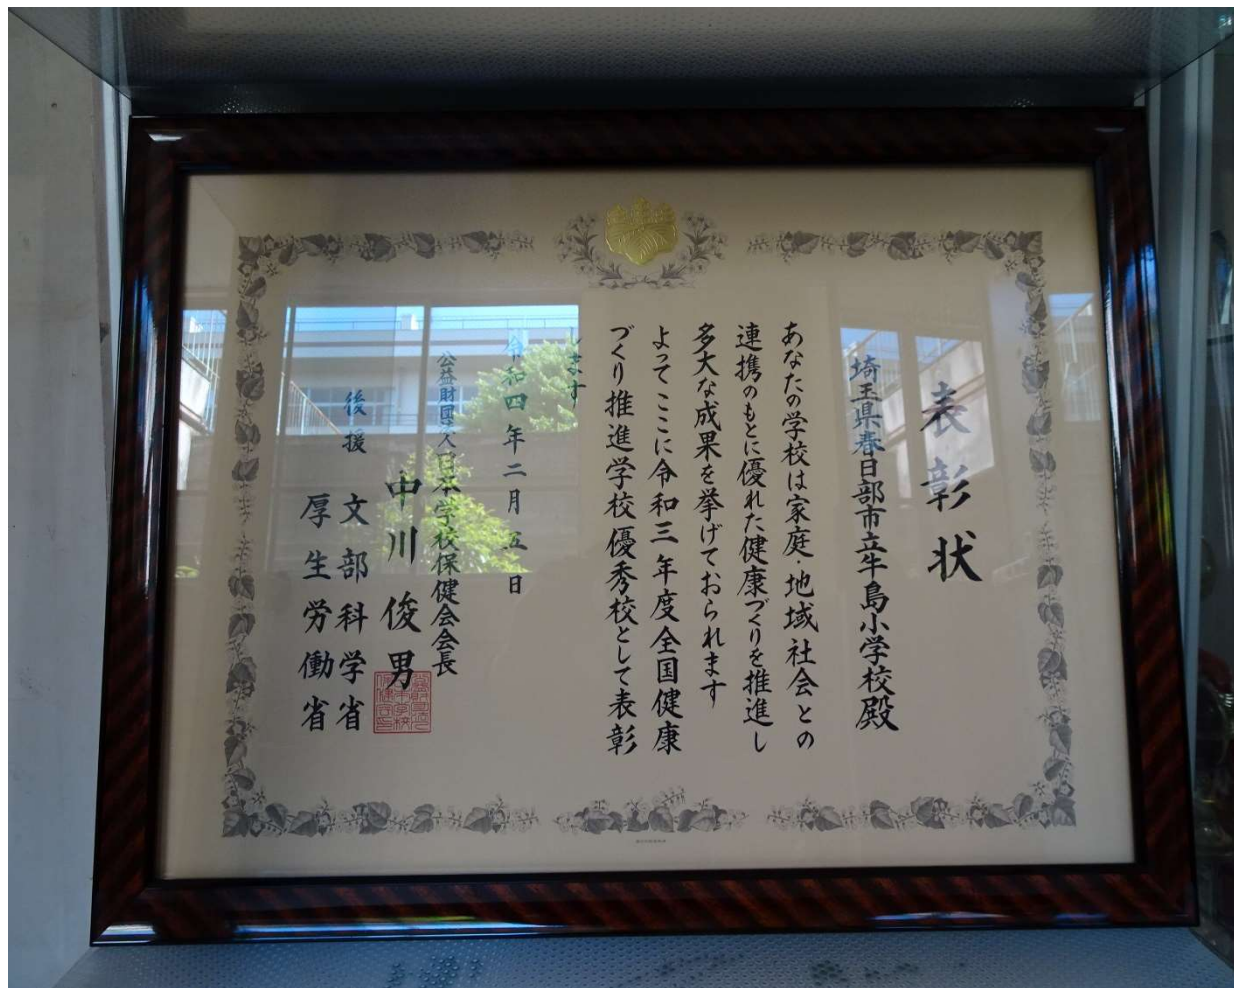 表彰状
埼玉県春日部市立牛島小学校殿
あなたの学校は家庭・地域社会との
連携のもとに優れた健康づくりを推進し
多大な成果を挙げておられます
よってここに令和三年度全国健康
づくり推進学校優秀校として表彰
します
令和四年二月五日
公益財団法人日本学校保健会会長
中川俊男
後援 文部科学省
厚生労働省